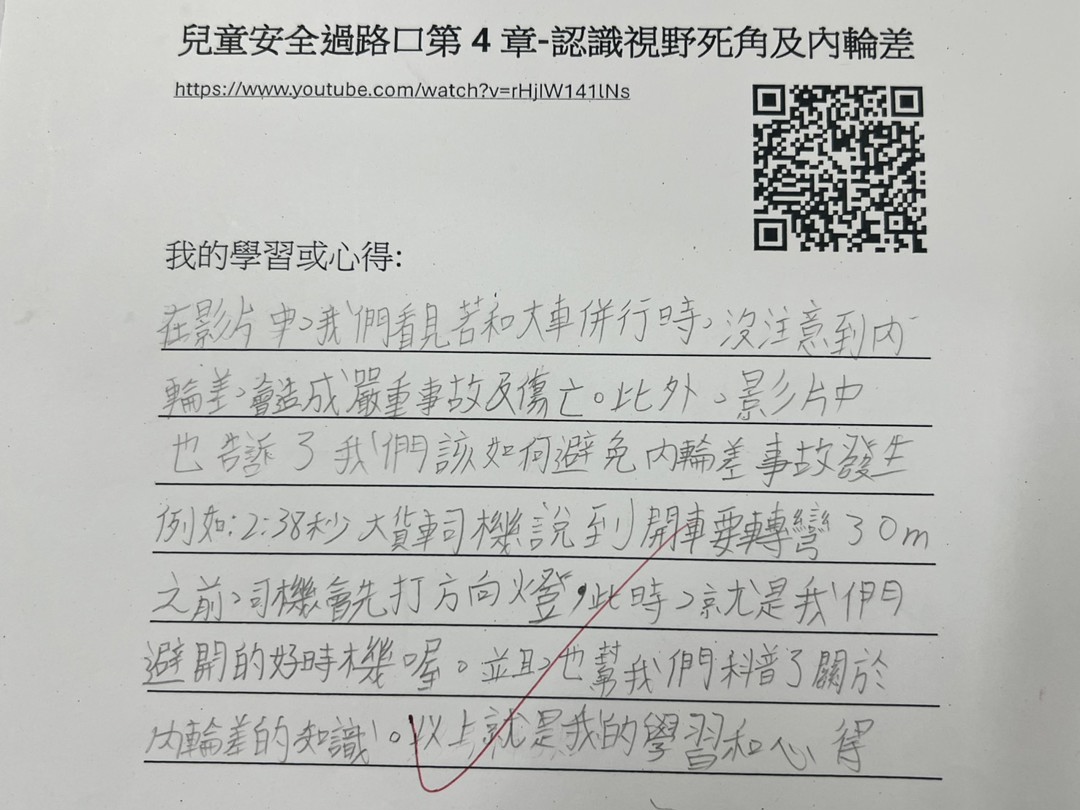 兒童安全過路口第 4 章-認識視野死角及內輪差
https://www.youtube.com/watch?v=rHjlW141lNs
我的學習或心得:
在影片中,我們看見若和大車併行時,沒注意到內
輪差,會造成嚴重事故及傷亡。此外,影片中
也告訴了我們該如何避免內輪差事故發生
例如:2:38秒大貨車司機說到開車要轉彎30m
之前,司機會先打方向燈,此時,就是我們
避開的好時機喔。並且,也幫我們科普了關於
內輪差的知識。以上就是我的學習和心得